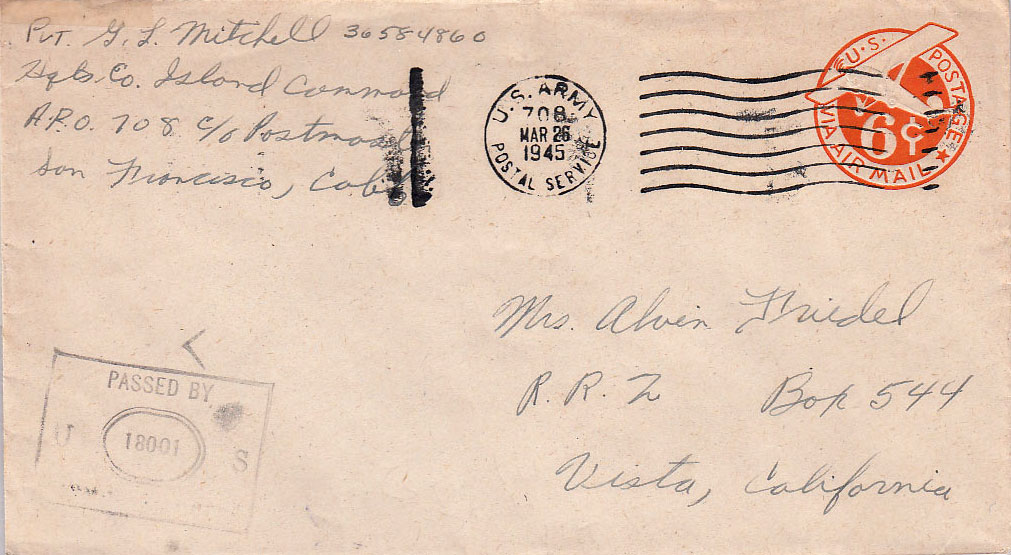 Pvt. G. L. Mitchell 36584860
Hqts. Co. Island Command
A.P.O. 708 c/o Postmas
San Francisco, Calif
U.S. ARMY
708
MAR 26
1945
POSTAL SERVICE
U.S. POSTAGE
6¢
VIA AIR MAIL
Mrs. Alvin Friedel
R. R. 2 Box 544
Vista, California
PASSED BY
U 18001 S